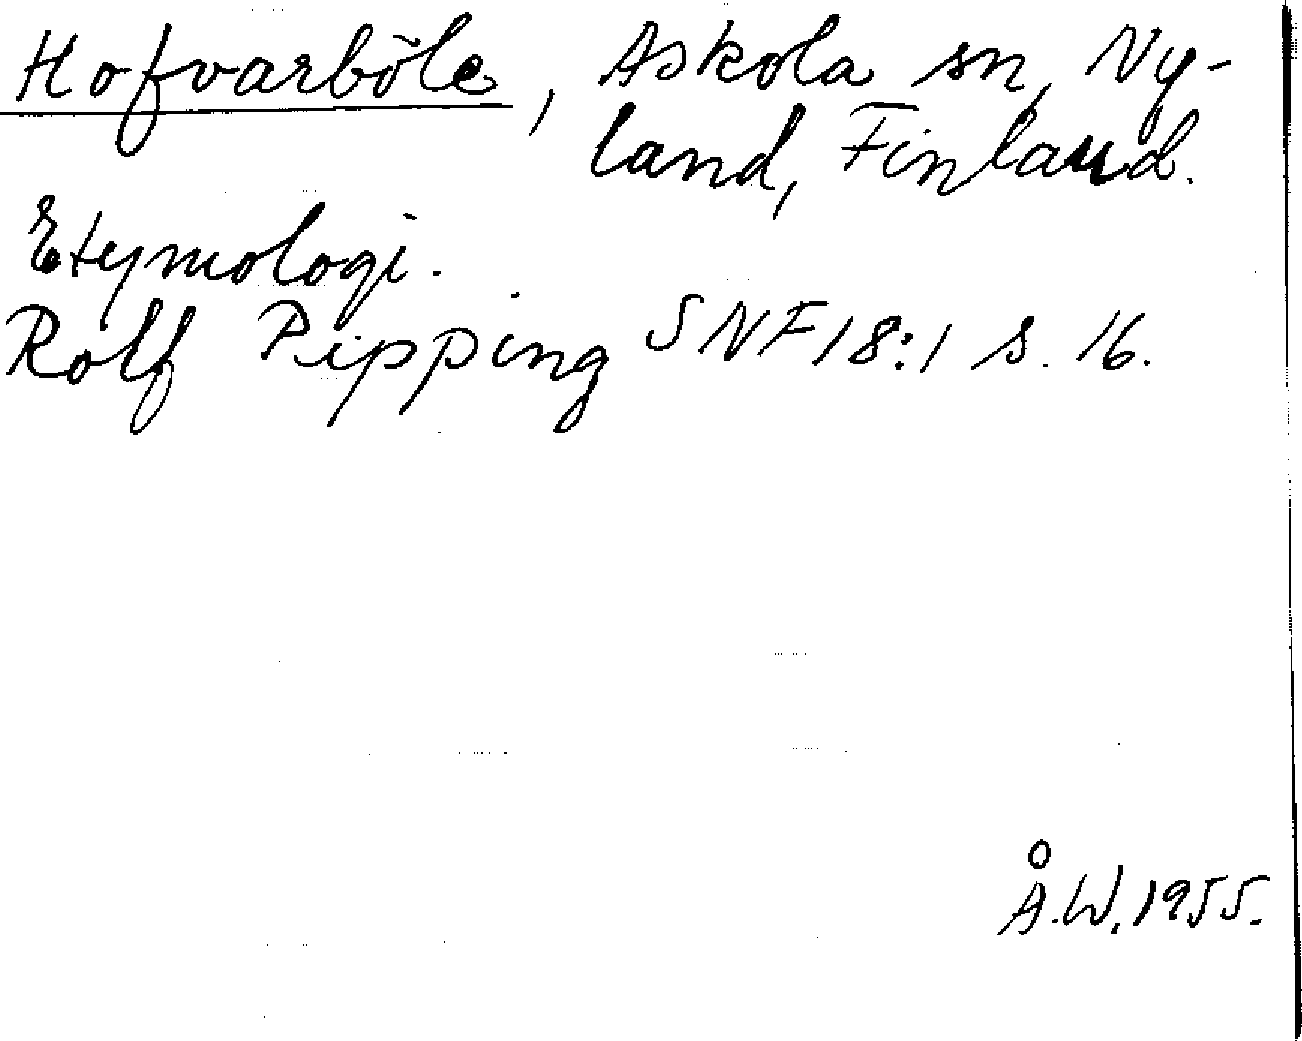 Hofvarböle, Askola sn, Ny-
land, Finland.
Etymologi.
Rolf Pipping SNF 18:1 s. 16.
Å.W. 1955.